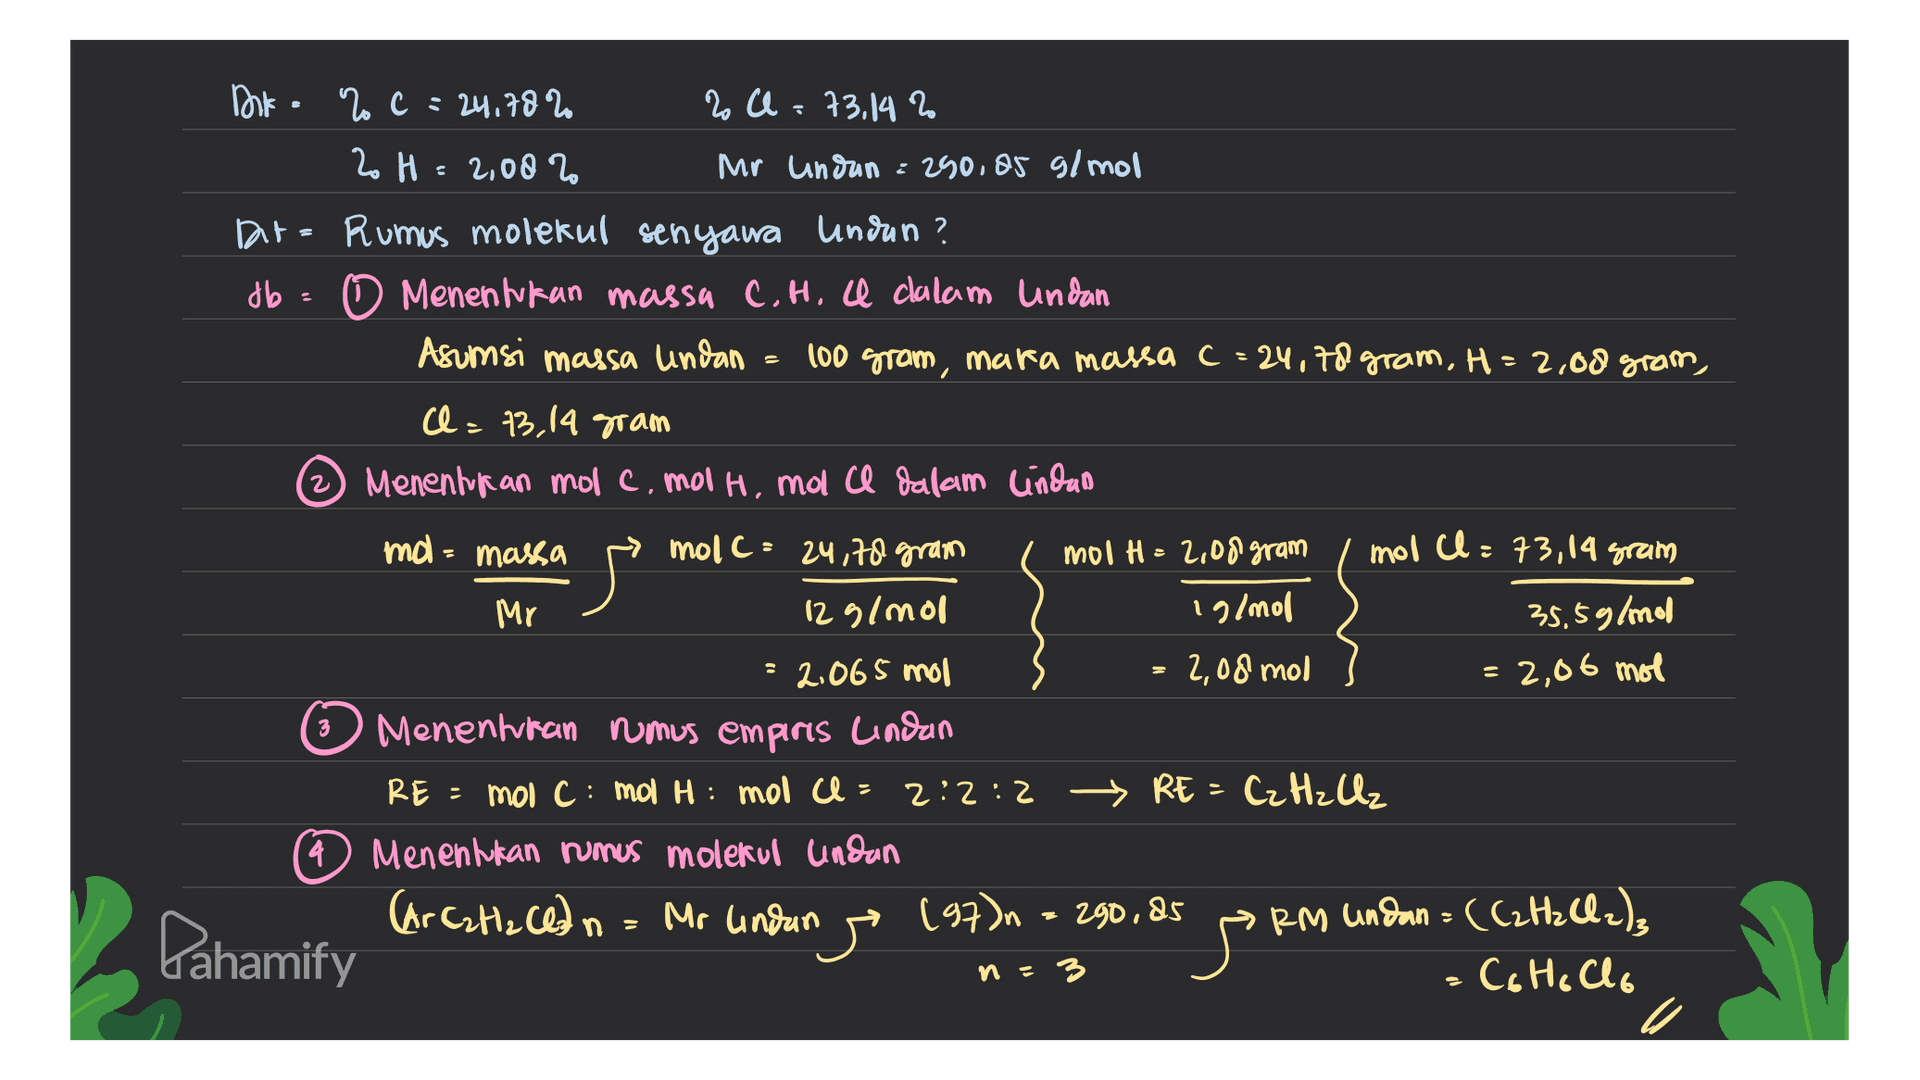 Dik = % C = 24,78 % % Cl = 73,14 %
% H = 2,08 % Mr lindan = 290,85 g/mol
Dit = Rumus molekul senyawa lindan ?
db = ① Menentukan massa C, H, Cl dalam lindan
Asumsi massa lindan = 100 gram, maka massa C = 24,78 gram, H = 2,08 gram,
Cl = 73,14 gram
② Menentukan mol C, mol H, mol Cl dalam lindan
mol = massa / Mr → mol C = 24,78 gram / 12 g/mol } mol H = 2,08 gram / 1 g/mol } mol Cl = 73,14 gram / 35,5 g/mol
= 2,065 mol = 2,08 mol = 2,06 mol
③ Menentukan rumus empiris lindan
RE = mol C : mol H : mol Cl = 2 : 2 : 2 → RE = C₂H₂Cl₂
④ Menentukan rumus molekul lindan
(Ar C₂H₂Cl₂)n = Mr lindan → (97)n = 290,85 → RM lindan = (C₂H₂Cl₂)₃
n = 3 = C₆H₆Cl₆
Pahamify